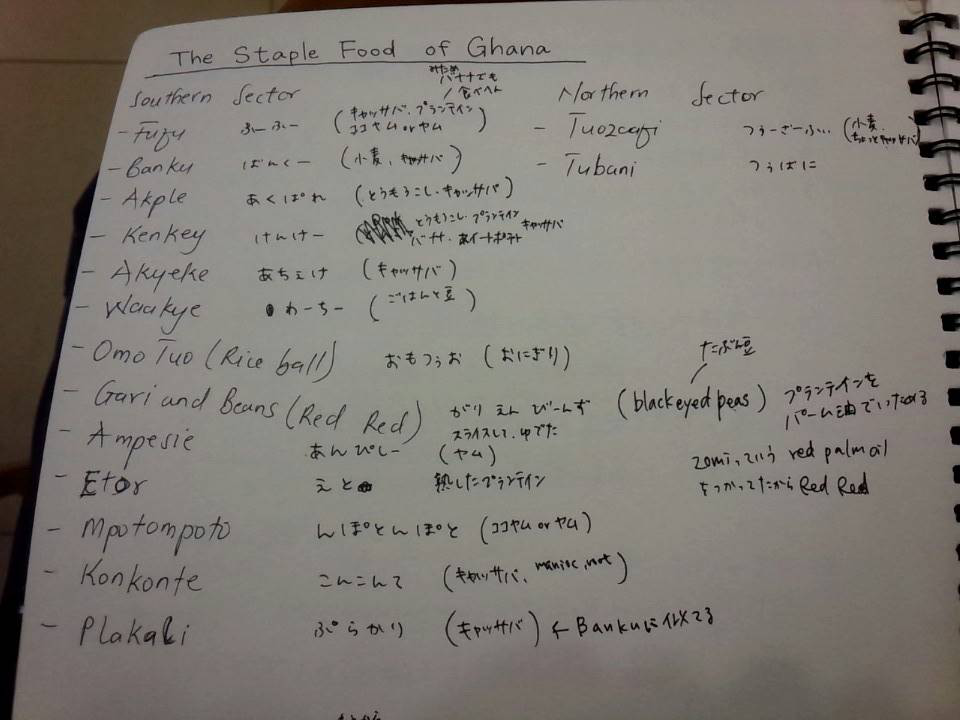 The Staple Food of Ghana
Southern Sector
みため
バナナでも
食べへん
- Fufu ふーふー (キャッサバ、プランテイン
ココヤム or ヤム)
- Banku ばんくー (小麦、キャッサバ)
- Akple あくぱれ (とうもろこし・キャッサバ)
- Kenkey けんけー (とうもろこし・プランテイン
バナナ・ キャッサバ
- Akyeke あちぇけ (キャッサバ)
- Waakye わーちー (ごはんと豆)
- Omo Tuo (Rice ball) おもつぅお (おにぎり)
- Gari and Beans (Red Red) がり えん びーんず (blackeyed peas) プランテインを
たぶん豆
パーム油でいためる
- Ampesie あんぺしー スライスして、ゆでた
(ヤム)
zomiっていう red palm oil
をつかってたから Red Red
- Etor えと 熟したプランテイン
- Mpotompoto んぽとんぽと (ココヤム or ヤム)
- Konkonte こんこんて (キャッサバ、manioc, not)
- Plakali ぷらかり (キャッサバ) ← Bankuにイメてる
Northern Sector
- Tuozaafi つぅーざーふぃ (小麦、
ちょっとキャッサバ)
- Tubani つぅばに